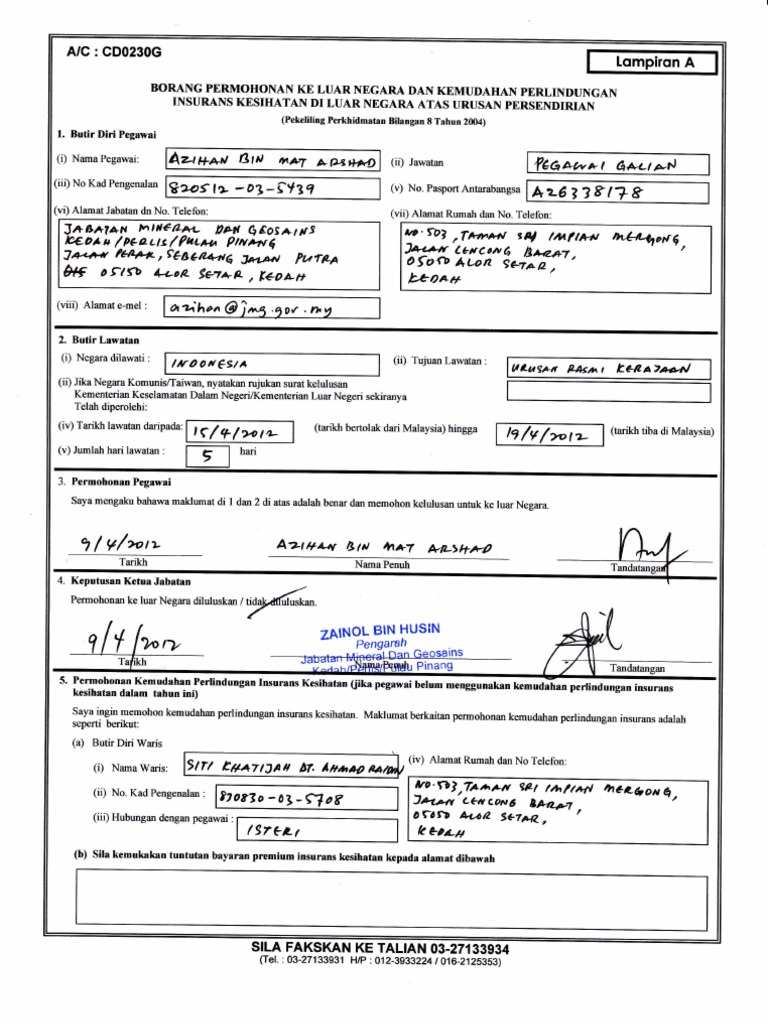 A/C : CD0230G
Lampiran A
BORANG PERMOHONAN KE LUAR NEGARA DAN KEMUDAHAN PERLINDUNGAN
INSURANS KESIHATAN DI LUAR NEGARA ATAS URUSAN PERSENDIRIAN
(Pekeliling Perkhidmatan Bilangan 8 Tahun 2004)
1. Butir Diri Pegawai
(i) Nama Pegawai: AZIHAN BIN MAT ARSHAD (ii) Jawatan PEGAWAI GALIAN
(iii) No Kad Pengenalan 820512-03-5439 (v) No. Pasport Antarabangsa A26338178
(vi) Alamat Jabatan dn No. Telefon: (vii) Alamat Rumah dan No. Telefon:
JABATAN MINERAL DAN GEOSAINS
KEDAH/PERLIS/PULAU PINANG
JALAN PERAK, SEBERANG JALAN PUTRA
05150 ALOR SETAR, KEDAH
NO.503, TAMAN SRI IMPIAN MERGONG,
JALAN LENCONG BARAT,
05050 ALOR SETAR,
KEDAH
(viii) Alamat e-mel : azihan@jmg.gov.my
2. Butir Lawatan
(i) Negara dilawati : INDONESIA (ii) Tujuan Lawatan : URUSAN RASMI KERAJAAN
(ii) Jika Negara Komunis/Taiwan, nyatakan rujukan surat kelulusan
Kementerian Keselamatan Dalam Negeri/Kementerian Luar Negeri sekiranya
Telah diperolehi:
(iv) Tarikh lawatan daripada: 15/4/2012 (tarikh bertolak dari Malaysia) hingga 19/4/2012 (tarikh tiba di Malaysia)
(v) Jumlah hari lawatan : 5 hari
3. Permohonan Pegawai
Saya mengaku bahawa maklumat di 1 dan 2 di atas adalah benar dan memohon kelulusan untuk ke luar Negara.
9/4/2012 AZIHAN BIN MAT ARSHAD
Tarikh Nama Penuh Tandatangan
4. Keputusan Ketua Jabatan
Permohonan ke luar Negara diluluskan / tidak diluluskan.
9/4/2012
ZAINOL BIN HUSIN
Pengarah
Jabatan Mineral Dan Geosains
Kedah/Perlis/Pulau Pinang
Tarikh Nama Penuh Tandatangan
5. Permohonan Kemudahan Perlindungan Insurans Kesihatan (jika pegawai belum menggunakan kemudahan perlindungan insurans
kesihatan dalam tahun ini)
Saya ingin memohon kemudahan perlindungan insurans kesihatan. Maklumat berkaitan permohonan kemudahan perlindungan insurans adalah
seperti berikut:
(a) Butir Diri Waris
(i) Nama Waris: SITI KHATIJAH BT. AHMAD (iv) Alamat Rumah dan No Telefon:
(ii) No. Kad Pengenalan : 830830-03-5708
(iii) Hubungan dengan pegawai : ISTERI
NO.503, TAMAN SRI IMPIAN MERGONG,
JALAN LENCONG BARAT,
05050 ALOR SETAR,
KEDAH
(b) Sila kemukakan tuntutan bayaran premium insurans kesihatan kepada alamat dibawah
SILA FAKSKAN KE TALIAN 03-27133934
(Tel. : 03-27133931 H/P : 012-3933224 / 016-2125353)